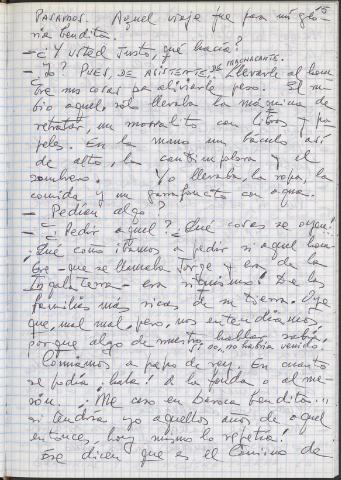 15
PASAMOS. Aquel viaje fue para mí glo-
ria bendita.
- ¿Y usted Justo, qué hacía?
- ¿Yo? PUES, DE ASISTENTE, DE MACHACANTE.
Llevarle al hom
bre sus cosas pa aliviarle peso. El
bio aquel, sólo llevaba la máquina de
retratar, un morralito con libros y pa
peles. En la mano un báculo así
de alto, la cantimplora y el
sombrero. Yo llevaba, la ropa, la
comida y un garrafoncto con agua.
- Pedían algo?
- ¿Pedir aquel? ¡Qué cosas se oyen!
¡Qué coño íbamos a pedir si aquel hom
bre - que se llamaba Jorge y era de la
Ingalaterra - era riquísimo! De las
familias más ricas de su tierra. Oye
que, mal mal, pero, nos entendíamos
porque algo de nuestro hablar sabía,
si no, no habría venido.
Comíamos a papo de rey. En cuanto
se podía, hala! a la fonda o al me-
són. ¡Me caso en baroca bendito...
si tendría yo aquellos años de aquel
entonces, hoy mismo lo repetía!
Ese dicen que es el Camino de